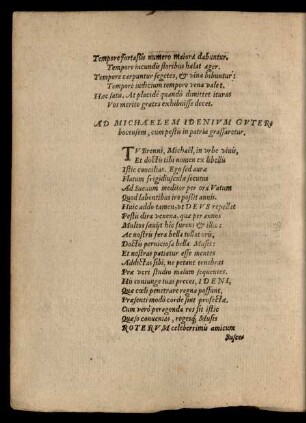 Tempore fortassis numero meiora dabuntur.
Tempore iucundis floribus halat ager.
Tempore carpuntur segetes, & vina bibuntur:
Tempore iudicium tempore vena valet.
Hac satu. At placidè quando dimittet ituros
Vos merito grates exhibuisse decet.
AD MICHAELEM IDENIVM GVTER
bocensem, cum pestis in patria grassaretur.
TV Brenni, Michaël, in vrbe viuis,
Et docti tibi nomen ex libellis
Istic conciliat. Ego sed aura
Flatum frigidiuscula secutus
Ad Sueuum meditor per ora Vatum
Quod labentibus tro possit annis.
Huic adde tamen, vt DEVS repellat
Pestis dira venena, qua per annos
Multos sauijt hic furens & illic:
Ac nostris fera bella tollat oris,
Doctis perniciosa bella Musis:
Et nostras patiatur esse mentes
Addictas sibi, ne petant tenebras
Præ vera studio malum sequentes.
His coniunge tuas preces, IDENI,
Quæ cœli penetrare regna possint,
Præsenti modò corde sint profectæ.
Cum verò peregonda res sit istic
Quæso conuenias, rogesq, Musis
ROTERVM celeberrimis amicum
Rusce